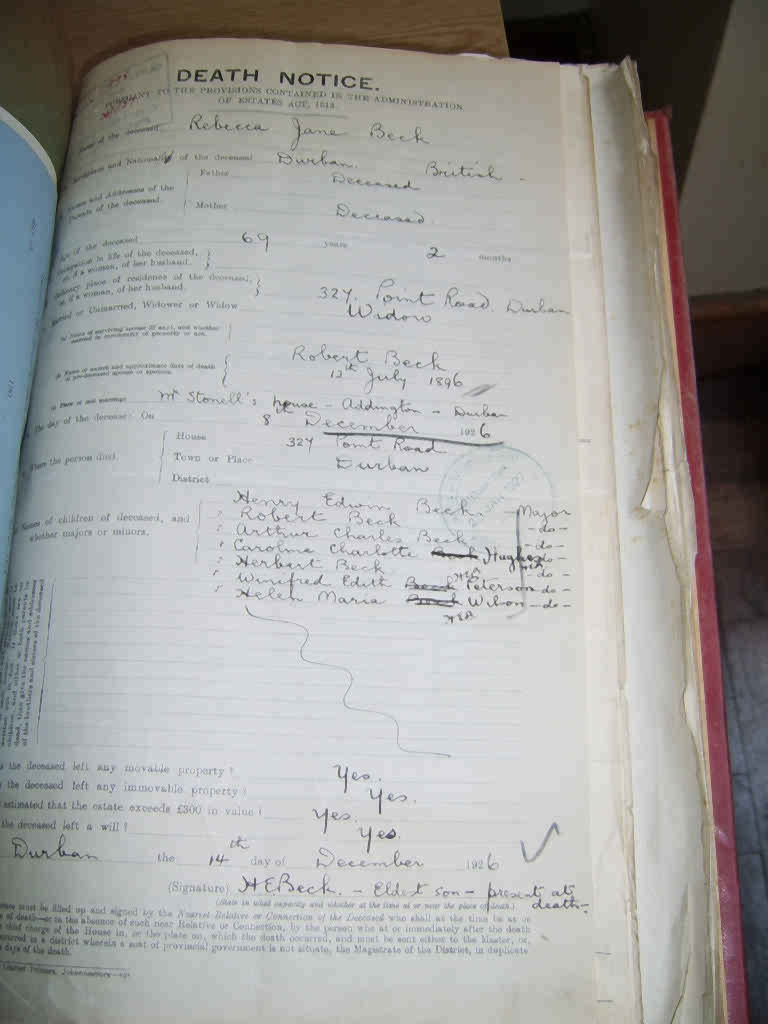 DEATH NOTICE.
PURSUANT TO THE PROVISIONS CONTAINED IN THE ADMINISTRATION
OF ESTATES ACT, 1913.
Name of the deceased Rebecca Jane Beck
Birthplace and Nationality of the deceased Durban. British -
Names and Addresses of the Parents of the deceased.
Father Deceased
Mother Deceased.
Age of the deceased 69 years 2 months
Occupation in life of the deceased,
or, if a woman, of her husband.
Ordinary place of residence of the deceased,
or, if a woman, of her husband.
327. Point Road. Durban
Married or Unmarried, Widower or Widow Widow
(a) Name of surviving spouse (if any), and whether
married in community of property or not.
(b) Name or names and approximate date of death
of pre-deceased spouse or spouses.
Robert Beck
12th July 1896
(c) Place of last marriage Mr Stonell's house - Addington - Durban
The day of the decease: On 8th December 1926
Where the person died.
House 327 Point Road
Town or Place Durban
District
Names of children of deceased, and
whether majors or minors.
Henry Edwin Beck - Major
" Robert Beck - do -
" Arthur Charles Beck - do -
" Caroline Charlotte Beck Hughes do -
" Herbert Beck - do -
" Winifred Edith Beck Peterson - do -
" Helen Maria Beck Wilson - do -
HEB
of the brothers and sisters of the deceased
the deceased left any movable property? Yes.
the deceased left any immovable property? Yes.
estimated that the estate exceeds £300 in value? Yes.
the deceased left a will? Yes.
Durban the 14th day of December 1926
(Signature) HEBeck. - Eldest son - present at death -
(State in what capacity and whether at the time at or near the place of death.)
must be filled up and signed by the Nearest Relative or Connection of the Deceased who shall at the time be at or
of death—or in the absence of such near Relative or Connection, by the person who at or immediately after the death
chief charge of the House in, or the place on, which the death occurred, and must be sent either to the Master, or,
occurred in a district wherein a seat of provincial government is not situate, the Magistrate of the District, in duplicate
days of the death.
Limited Printers, Johannesburg